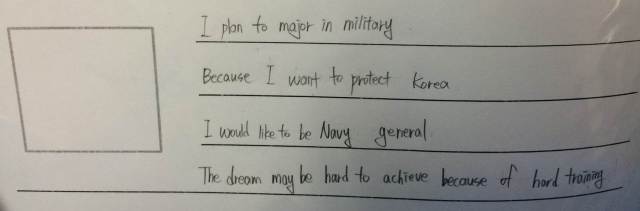 I plan to major in military
Because I want to protect Korea
I would like to be Navy general
The dream may be hard to achieve because of hard training